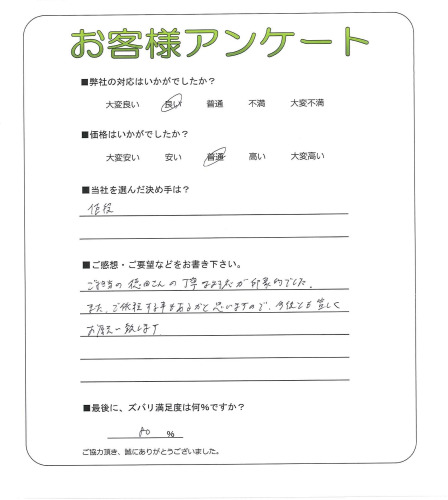 お客様アンケート
■弊社の対応はいかがでしたか？
大変良い 良い 普通 不満 大変不満
■価格はいかがでしたか？
大変安い 安い 普通 高い 大変高い
■当社を選んだ決め手は？
値段
■ご感想・ご要望などをお書き下さい。
ご担当の徳田さんの丁寧な対応が印象的でした。
また、ご依頼する事もあるかと思いますので、今後とも宜しく
お願い致します。
■最後に、ズバリ満足度は何%ですか？
80 %
ご協力頂き、誠にありがとうございました。